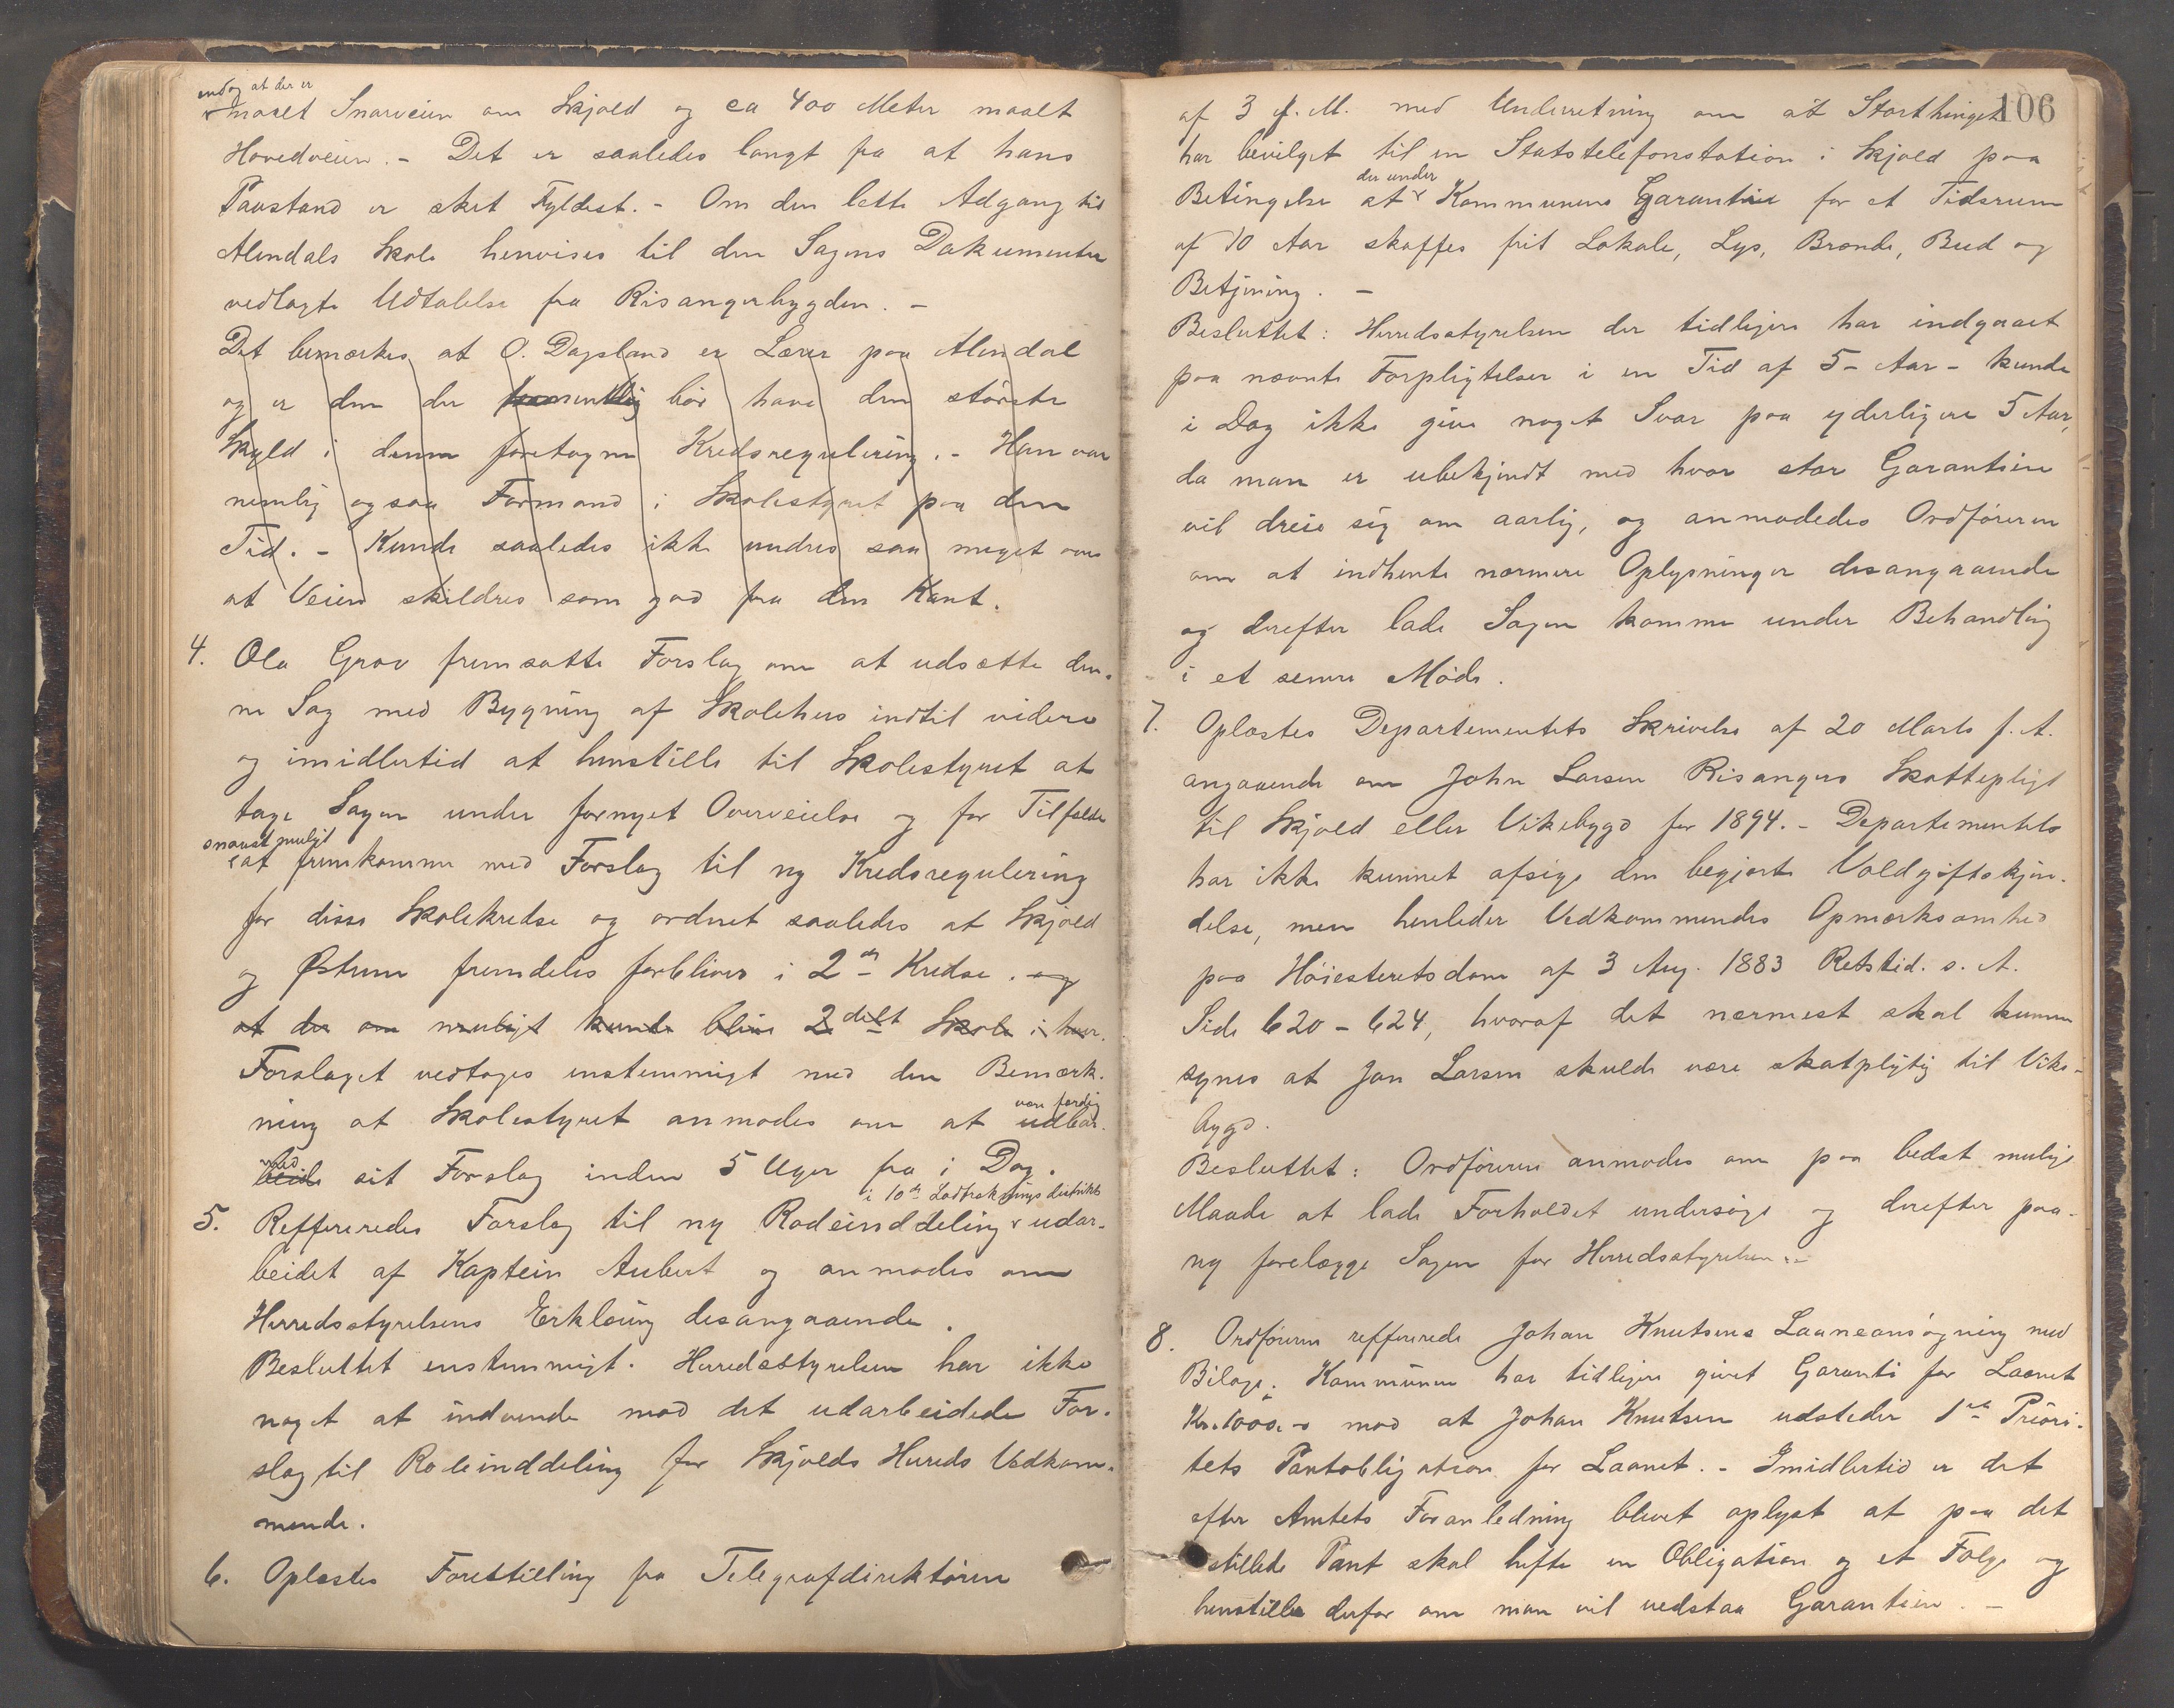 endog at der er
maalt Snarveien om Skjold og ca 400 Meter maalt
Hovedveien. - Det er saaledes langt fra at hans
Paastand er sket Fyldest. - Om den lette Adgang til
Alendals Skole henvises til den Sagens Dokumenter
vedlagte Udtalelse fra Risangerbygden. -
Det bemærkes at O. Dagsland er Lærer paa Alendal
og er den der bør have den største
Skyld i denne foretagne Kredsregulering. - Han var
nemlig ogsaa Formand i Skolestyret paa den
Tid. - Kunde saaledes ikke undres saa meget over
at Veien skildres som god fra den Kant.
4. Ola Grov fremsatte Forslag om at udsætte den-
ne Sag med Bygning af Skolehus indtil videre
og imidlertid at henstille til Skolestyret at
tage Sagen under fornyet Overveielse og for Tilfælde
snarest muligt
at fremkomme med Forslag til ny Kredsregulering
for disse Skolekredse og ordnet saaledes at Skjold
og Østrem fremdeles forbliver i 2de Kredse. og
at der om muligt kunde blive 2delt Skole i hver.
Forslaget vedtoges enstemmigt med den Bemærk-
ning at Skolestyret anmodes om at udbar-
være færdig
med
beide sit Forslag inden 5 Uger fra i Dag.
i 10de Lodtrækningsdistrikt
5. Reffereredes Forslag til ny Rodeinddeling udar-
beidet af Kaptein Aubert og anmodes om
Herredsstyrelsens Erklæring desangaaende.
Besluttet enstemmigt. Herredsstyrelsen har ikke
noget at indvende mod det udarbeidede For-
slag til Rodeinddeling for Skjolds Herreds Vedkom-
mende.
6. Oplæstes Forestilling fra Telegrafdirektøren
106
af 3 f. M. med Underretning om at Storthinget
har bevilget til en Statstelefonstation i Skjold paa
der under
Betingelse at Kommunens Garantie for et Tidsrum
af 10 Aar skaffes frit Lokale, Lys, Brænde, Bud og
Betjening. -
Besluttet: Herredsstyrelsen der tidligere har indgaaet
paa nævnte Forpligtelser i en Tid af 5 - Aar - kunde
i Dag ikke give noget Svar paa yderligere 5 Aar,
da man er ubekjendt med hvor stor Garantien
vil dreie sig om aarlig, og anmodedes Ordføreren
om at indhente nærmere Oplysninger desangaaende
og derefter lade Sagen komme under Behandling
i et senere Møde.
7. Oplæstes Departementets Skrivelse af 20 Marts f. A.
angaaende om John Larsen Risangers Skattepligt
til Skjold eller Vikebygd for 1894. - Departementets
har ikke kunnet afsige den begjærte Voldgiftskjen-
delse, men henleder Vedkommendes Opmærksomhed
paa Høiesteretsdom af 3 Aug. 1883 Retstid. s. A.
Side 620 - 624, hvoraf det nærmest skal kunne
synes at Jon Larsen skulde være skatpligtig til Vike-
bygd.
Besluttet: Ordføreren anmodes om paa bedst mulige
Maade at lade Forholdet undersøge og derefter paa-
ny forelægge Sagen for Herredsstyrelsen. -
8. Ordføreren reffererede Johan Knutsens Laaneansøgning med
Bilage. Kommunen har tidligere givet Garanti for Laanet
Kr. 1000.- mod at Johan Knutsen udsteder 1ste Priori-
tets Pantobligation for Laanet. - Imidlertid er det
efter Amtets Foranledning blevet oplyst at paa det
stillede Pant skal hefte en Obligation og et Følge og
henstilles derfor om man vil vedstaa Garantien. -